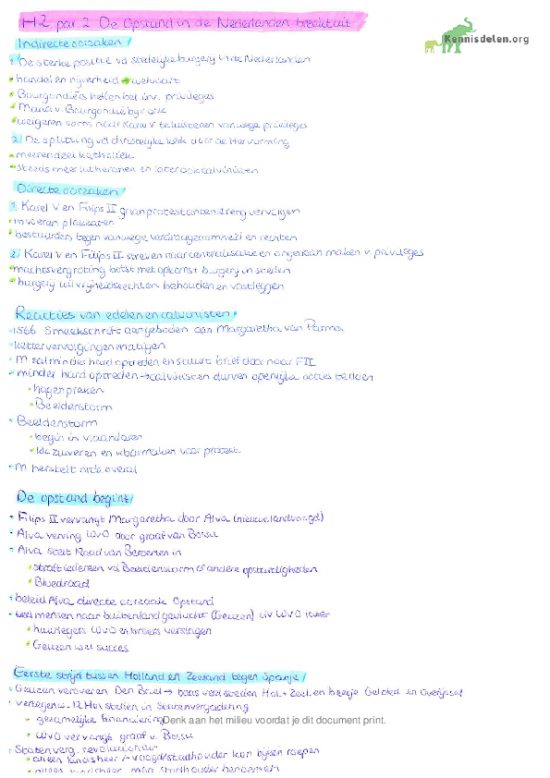 H2 par 2 De Opstand in de Nederlanden breekt uit
Kennisdelen.org
Indirecte oorzaken
1. De sterke positie vd stedelijke burgerij in de Nederlanden
handel en nijverheid → welvaart
Bourgondiërs hielden bet inv. privileges
Maria v. Bourgondië
weigeren soms naar Karel V te luisteren vanwege privileges
2. De splitsing vd christelijke kerk door de Hervorming
merendeel katholiek
steeds meer lutheranen en later ook calvinisten
Directe oorzaken
1. Karel V en Filips II gaan protestanten streng vervolgen
invoeren plakkaten
bestuurders tegen vanwege verdraagzaamheid en rechten
2. Karel V en Filips II streven naar centralisatie en ongedaan maken v. privileges
machtsvergroting botst met opkomst burgerij in steden
burgerij wil vrijheidsrechten behouden en vastleggen
Reacties van edelen en calvinisten
1566 Smeekschrift aangeboden aan Margaretha van Parma
kettervervolgingen matigen
M zal minder hard optreden en stuurt brief door naar FII
minder hard optreden → calvinisten durven openlijke acties
hagenpreken
Beeldenstorm
Beeldenstorm
begin in Vlaanderen
kk zuiveren en klaarmaken voor protest.
M herstelt orde overal
De opstand begint
Filips II vervangt Margaretha door Alva (nieuwe landvoogd)
Alva verving WvO door graaf van Bossu
Alva stelt Raad van Beroerten in
straft iedereen vd Beeldenstorm of andere opstandigheden
Bloedraad
beleid Alva directe oorzaak Opstand
veel mensen naar buitenland gevlucht (Geuzen) o.l.v WvO
huurlegers WvO en broers verslagen
Geuzen wel succes
Eerste strijd tussen Holland en Zeeland tegen Spanje
Geuzen veroveren Den Briel → daarna veel steden Hol. + Zeel. en beetje Gelderl. en Overijssel
vertegenw. 12 Hol steden in Statenvergadering
gezamenlijke financiering
Denk aan het milieu voordat je dit document print.
WvO vervangt graaf v. Bossu
Statenverg. revolutionair
alleen landsheer / voogd/stadhouder kon bijeen roepen
alleen landsheer mag stadhouder benoemen